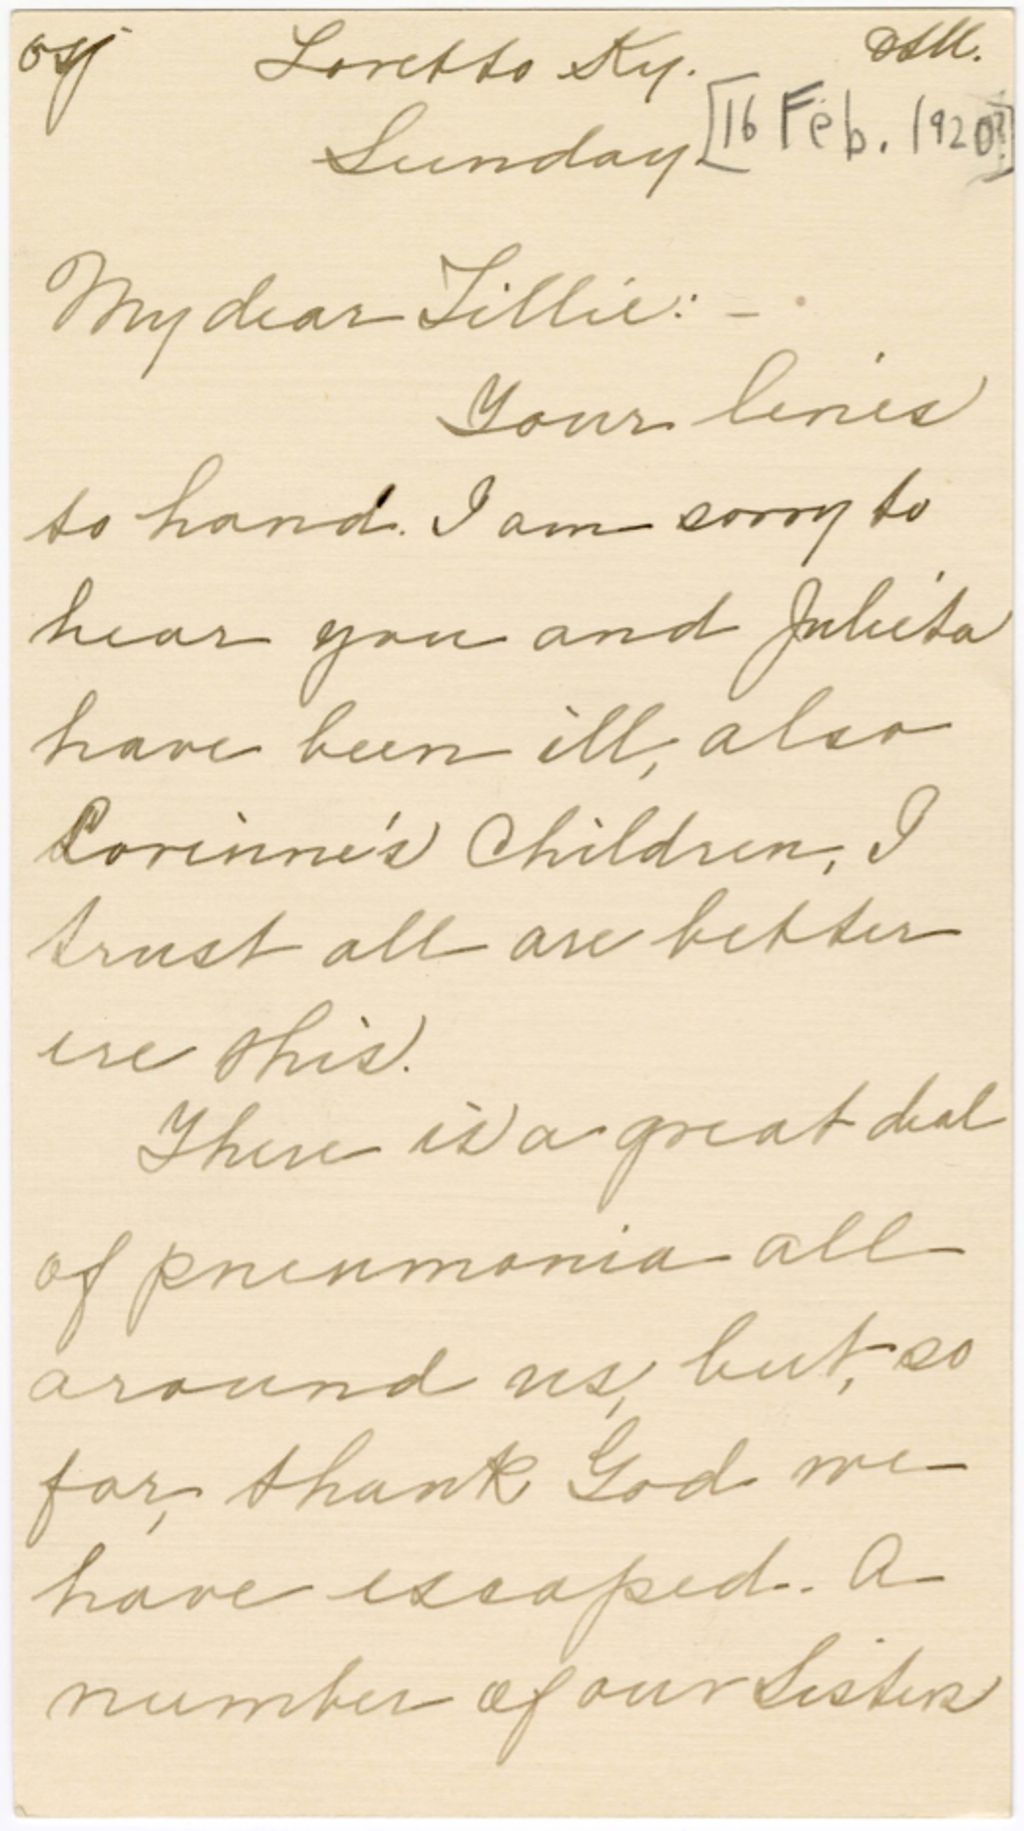 Loretto Ky.
Sunday [16 Feb. 1920?]
My dear Tillie: -
Your lines
to hand. I am sorry to
hear you and Julieta
have been ill, also
Corinne's Children, I
trust all are better
ere this.
There is a great deal
of pneumonia all
around us, but, so
far, thank God we
have escaped. A
number of our Sisters